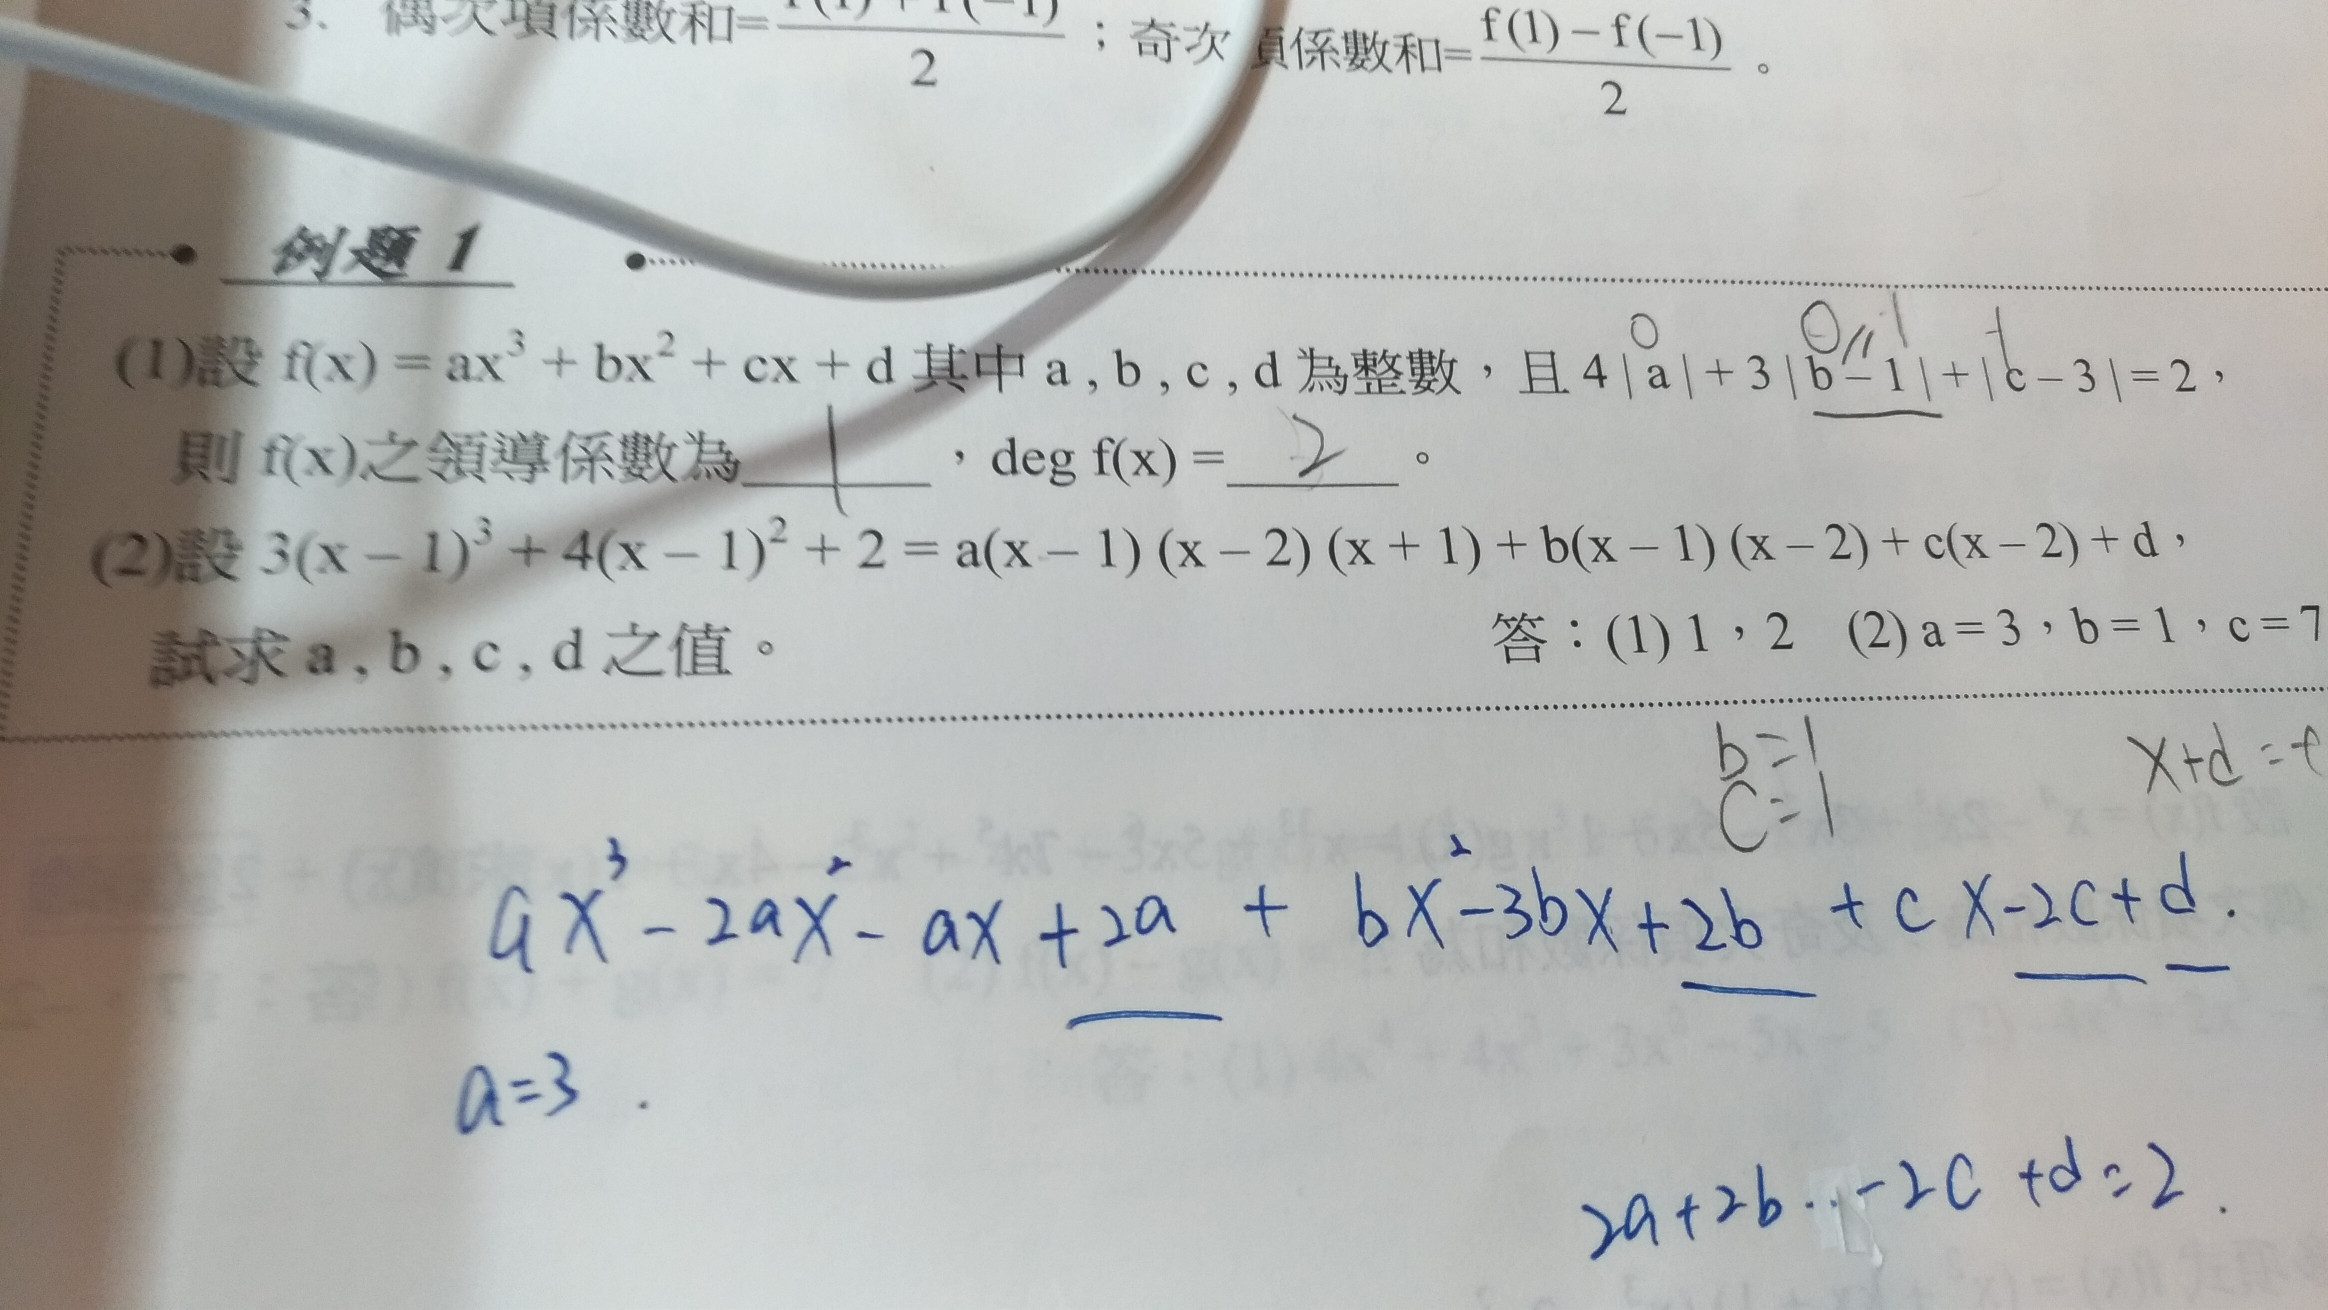 3. 偶次項係數和=f(1)+f(-1)/2 ；奇次項係數和=f(1)-f(-1)/2 。
例題 1
(1)設 f(x) = ax³ + bx² + cx + d 其中 a , b , c , d 為整數，且 4 | a | + 3 | b – 1 | + | c – 3 | = 2，
0 0 1
則 f(x)之領導係數為 1 ，deg f(x) = 2 。
(2)設 3(x – 1)³ + 4(x – 1)² + 2 = a(x – 1) (x – 2) (x + 1) + b(x – 1) (x – 2) + c(x – 2) + d，
試求 a , b , c , d 之值。 答：(1) 1，2 (2) a = 3，b = 1，c = 7
b=1
c=1
x+d=
ax³-2ax²-ax+2a + bx²-3bx+2b + cx-2c+d.
a=3 .
2a+2b -2c +d=2 .